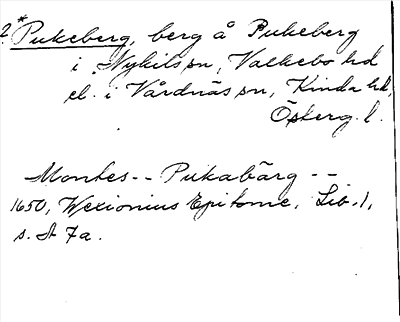 ?*Pukeberg, berg å Pukeberg
i Nykils sn, Valkebo hd
el. i Vårdnäs sn, Kinda hd,
Östergl.
Montes -- Pukabärg --
1650, Wexionius Epitome, Lib. 1,
s. A 7a.